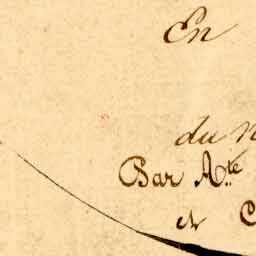 En
du n
Bar A.te
et C